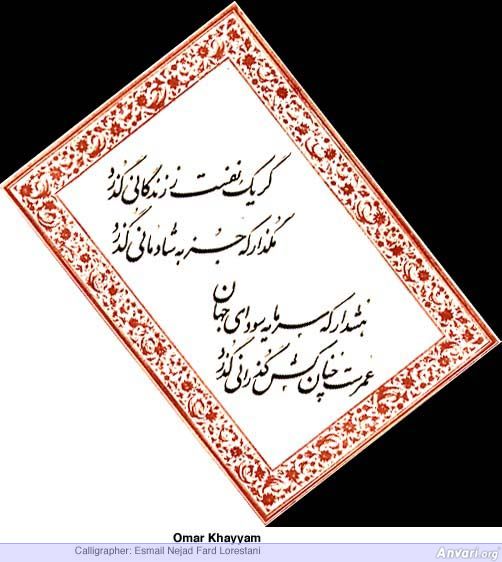 گر یک نفست ز زندگانی گذرد
مگذار که جز به شادمانی گذرد
هشدار که سرمایه سودای جهان
عمرست چنان کش گذرانی گذرد
Omar Khayyam
Calligrapher: Esmail Nejad Fard Lorestani
Anvari.org